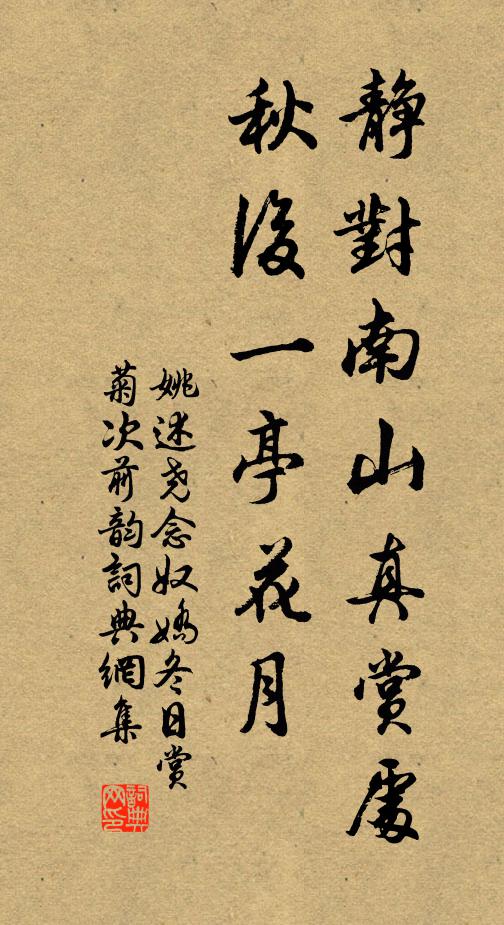 靜對南山真賞處
秋後一亭花月
姚述堯念奴嬌冬日賞
菊次前韵詞典網集
詞典
网印